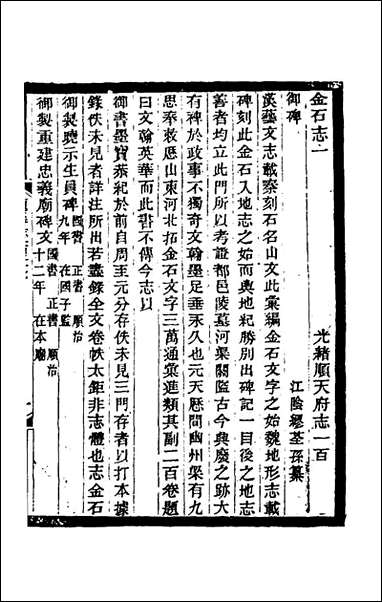 金石志一　　　　　光緒順天府志一百
御碑　　　　　江陰繆荃孫纂
漢藝文志載秦刻石名山文此彙編金石文字之始魏地形志載
碑刻此金石入地志之始而輿地紀勝別出碑記一目後之地志
善者均立此門所以考證都邑陵墓河渠關隘古今興廢之跡大
有裨於政事不獨奇文翰墨足垂永久也元天歷間幽州梁有九
思奉敕歷山東河北拓金石文字三萬通彙進類其副二百卷題
曰文翰英華而此書不傳今志以
御書墨寶恭紀於前自周至元分存佚未見三門存者以打本據
錄佚未見者詳注所出若盡錄全文卷帙太鉅非志體也志金石
御製曉示生員碑國書　正書　順治九年　在國子監
御製重建忠義廟碑文國書　正書　順治十二年　在本廟